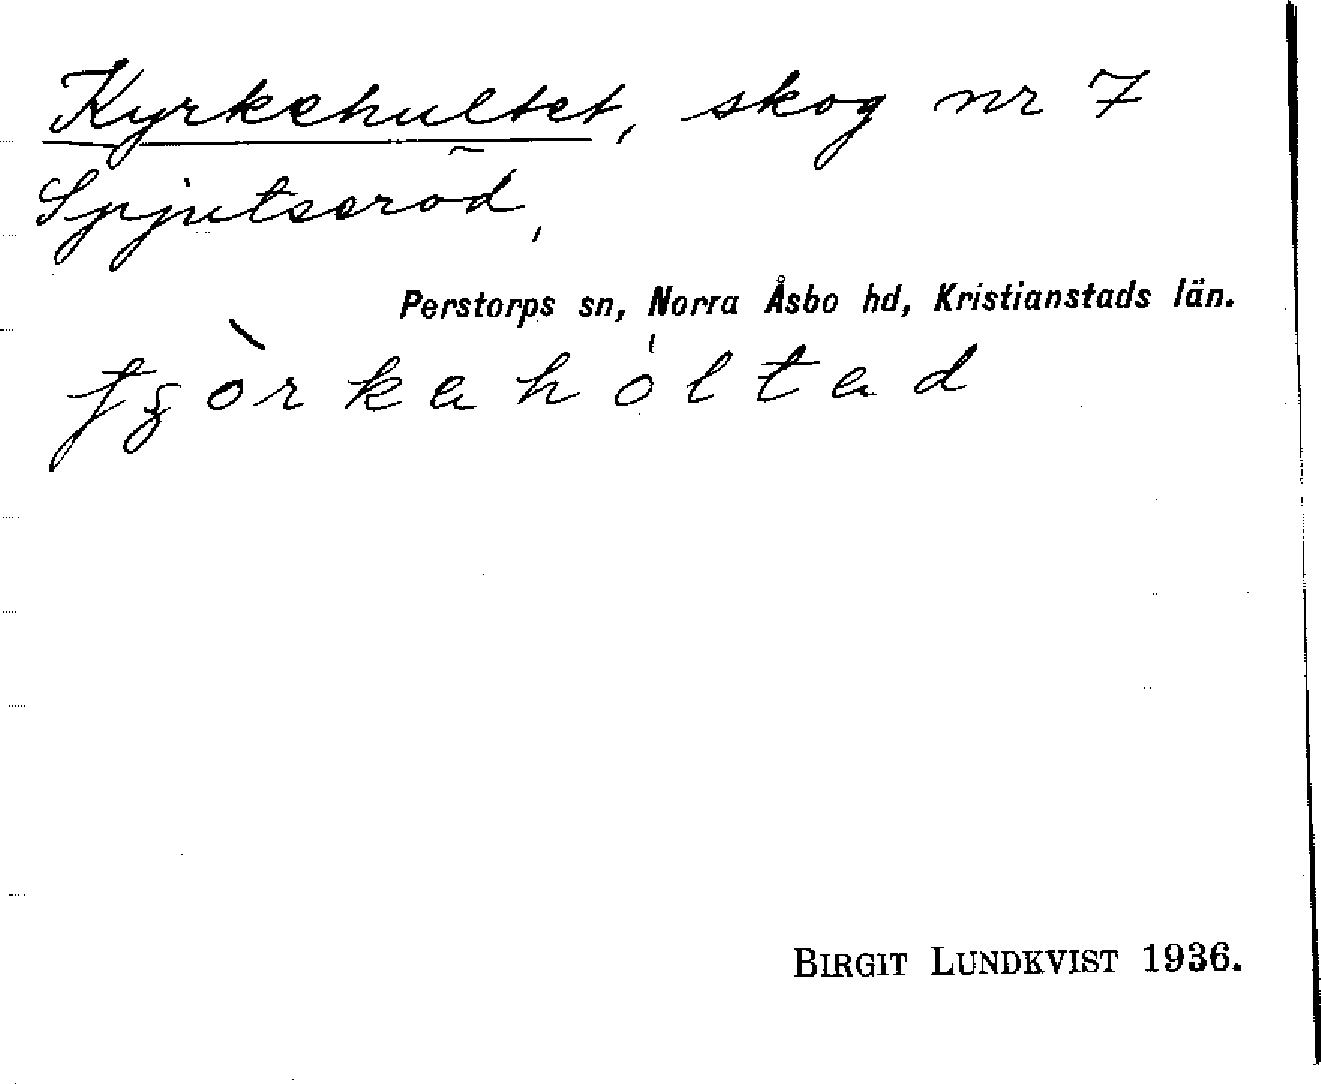 Kyrkehultet, skog nr 7
Spjutseröd,
Perstorps sn, Norra Åsbo hd, Kristianstads län.
BIRGIT LUNDKVIST 1936.